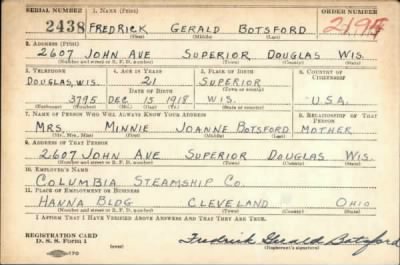 SERIAL NUMBER 1. NAME (Print) ORDER NUMBER
2438 FREDRICK GERALD BOTSFORD 2195
(First) (Middle) (Last)
2. ADDRESS (Print)
2607 JOHN AVE SUPERIOR DOUGLAS WIS.
(Number and street or R. F. D. number) (Town) (County) (State)
3. TELEPHONE 4. AGE IN YEARS 5. PLACE OF BIRTH 6. COUNTRY OF CITIZENSHIP
DOUGLAS, WIS. 21 SUPERIOR
DATE OF BIRTH (Town or county)
3795 DEC 15 1918 WIS. U.S.A.
(Exchange) (Number) (Mo.) (Day) (Yr.) (State or country)
7. NAME OF PERSON WHO WILL ALWAYS KNOW YOUR ADDRESS 8. RELATIONSHIP OF THAT PERSON
MRS. MINNIE JOANNE BOTSFORD MOTHER
(Mr., Mrs., Miss) (First) (Middle) (Last)
9. ADDRESS OF THAT PERSON
2607 JOHN AVE SUPERIOR DOUGLAS WIS.
(Number and street or R. F. D. number) (Town) (County) (State)
10. EMPLOYER'S NAME
COLUMBIA STEAMSHIP CO.
11. PLACE OF EMPLOYMENT OR BUSINESS
HANNA BLDG CLEVELAND OHIO
(Number and street or R. F. D. number) (Town) (County) (State)
I AFFIRM THAT I HAVE VERIFIED ABOVE ANSWERS AND THAT THEY ARE TRUE.
REGISTRATION CARD
D. S. S. Form 1 (over) Fredrick Gerald Botsford
(Registrant's signature)